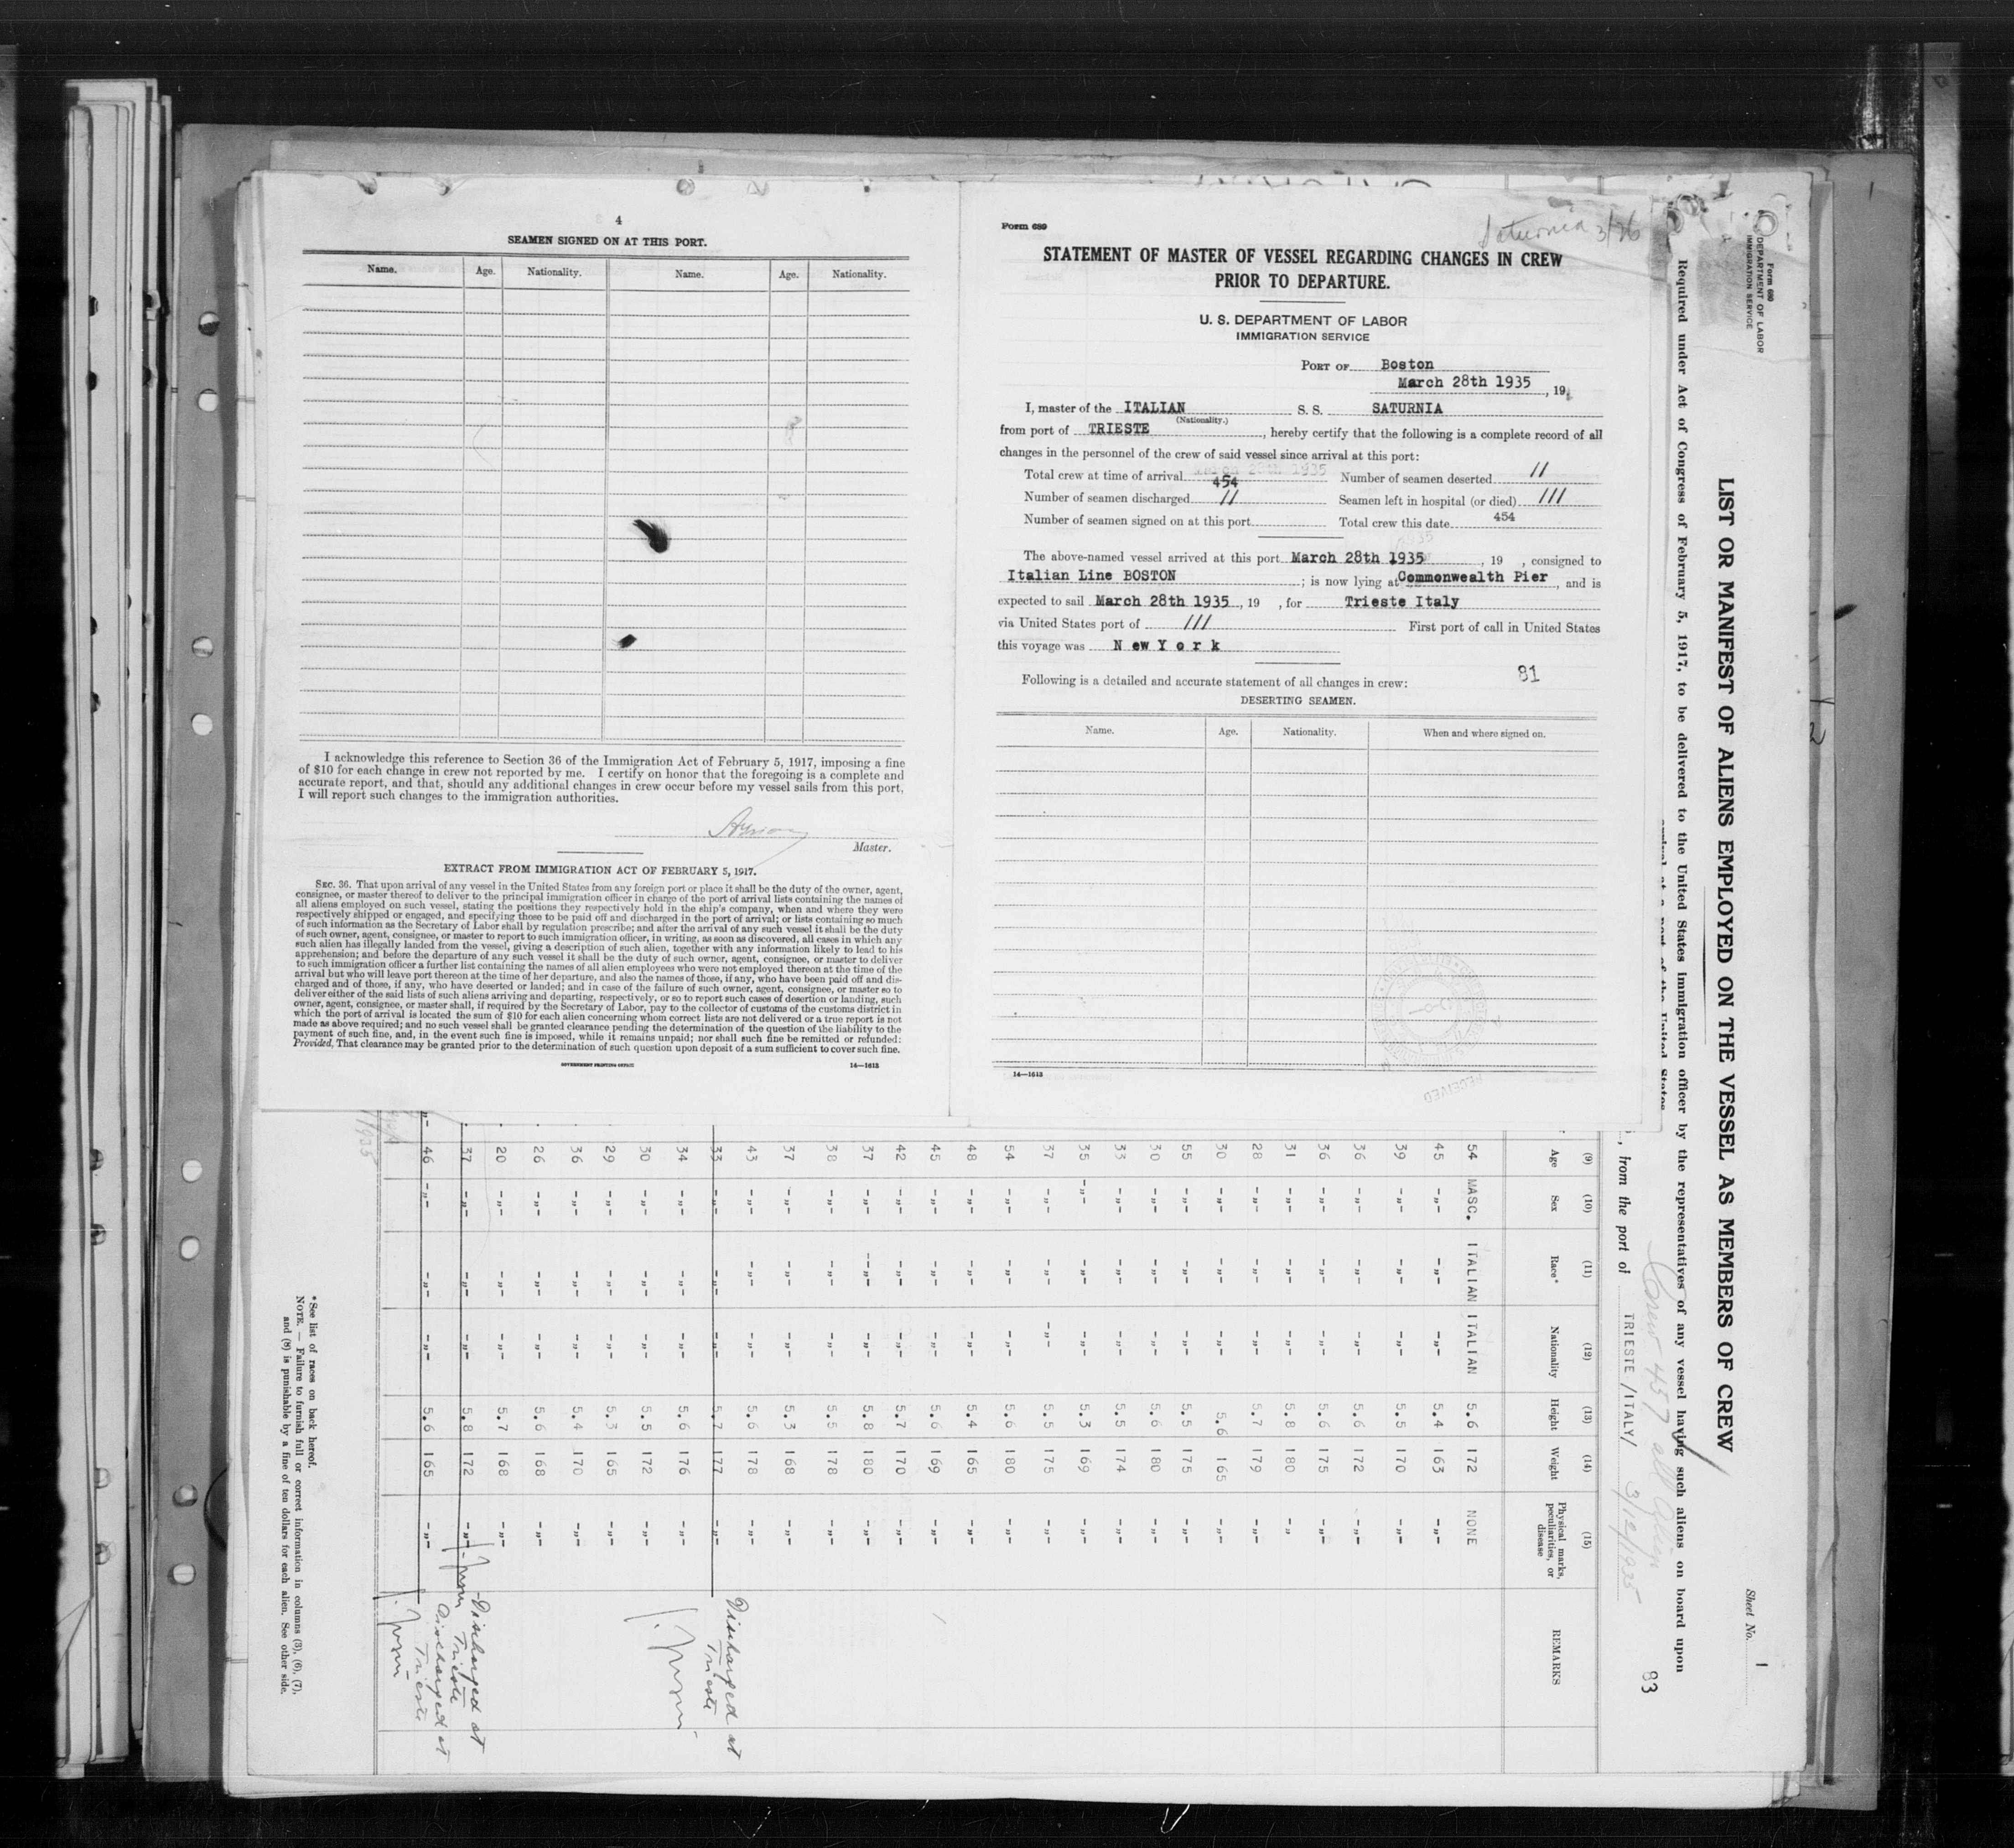 4
SEAMEN SIGNED ON AT THIS PORT.
Name. Age. Nationality. Name. Age. Nationality.
I acknowledge this reference to Section 36 of the Immigration Act of February 5, 1917, imposing a fine
of $10 for each change in crew not reported by me. I certify on honor that the foregoing is a complete and
accurate report, and that, should any additional changes in crew occur before my vessel sails from this port,
I will report such changes to the immigration authorities.
Master.
EXTRACT FROM IMMIGRATION ACT OF FEBRUARY 5, 1917.
SEC. 36. That upon arrival of any vessel in the United States from any foreign port or place it shall be the duty of the owner, agent,
consignee, or master thereof to deliver to the principal immigration officer in charge of the port of arrival lists containing the names of
all aliens employed on such vessel, stating the positions they respectively hold in the ship's company, when and where they were
respectively shipped or engaged, and specifying those to be paid off and discharged in the port of arrival; or lists containing so much
of such information as the Secretary of Labor shall by regulation prescribe; and after the arrival of any such vessel it shall be the duty
of such owner, agent, consignee, or master to report to such immigration officer, in writing, as soon as discovered, all cases in which any
such alien has illegally landed from the vessel, giving a description of such alien, together with any information likely to lead to his
apprehension; and before the departure of any such vessel it shall be the duty of such owner, agent, consignee, or master to deliver
to such immigration officer a further list containing the names of all alien employees who were not employed thereon at the time of the
arrival but who will leave port thereon at the time of her departure, and also the names of those, if any, who have been paid off and dis-
charged and of those, if any, who have deserted or landed; and in case of the failure of such owner, agent, consignee, or master so to
deliver either of the said lists of such aliens arriving and departing, respectively, or so to report such cases of desertion or landing, such
owner, agent, consignee, or master shall, if required by the Secretary of Labor, pay to the collector of customs of the customs district in
which the port of arrival is located the sum of $10 for each alien concerning whom correct lists are not delivered or a true report is not
made as above required; and no such vessel shall be granted clearance pending the determination of the question of the liability to the
payment of such fine, and, in the event such fine is imposed, while it remains unpaid; nor shall such fine be remitted or refunded:
Provided, That clearance may be granted prior to the determination of such question upon deposit of a sum sufficient to cover such fine.
GOVERNMENT PRINTING OFFICE 14—1613
Form 689
Saturnia 3/26
STATEMENT OF MASTER OF VESSEL REGARDING CHANGES IN CREW
PRIOR TO DEPARTURE.
U. S. DEPARTMENT OF LABOR
IMMIGRATION SERVICE
PORT OF Boston
March 28th 1935, 19
I, master of the ITALIAN S. S. SATURNIA
(Nationality.)
from port of TRIESTE, hereby certify that the following is a complete record of all
changes in the personnel of the crew of said vessel since arrival at this port:
Total crew at time of arrival March 28th 1935 454 Number of seamen deserted //
Number of seamen discharged // Seamen left in hospital (or died) ///
Number of seamen signed on at this port Total crew this date 454
The above-named vessel arrived at this port March 28th 1935, 19 , consigned to
Italian Line BOSTON ; is now lying at Commonwealth Pier, and is
expected to sail March 28th 1935, 19 , for Trieste Italy
via United States port of /// First port of call in United States
this voyage was NewYork
81
Following is a detailed and accurate statement of all changes in crew:
DESERTING SEAMEN.
Name. Age. Nationality. When and where signed on.
14—1613
RECEIVED
Form 680
DEPARTMENT OF LABOR
IMMIGRATION SERVICE
Sheet No. 1
LIST OR MANIFEST OF ALIENS EMPLOYED ON THE VESSEL AS MEMBERS OF CREW
Required under Act of Congress of February 5, 1917, to be delivered to the United States immigration officer by the representatives of any vessel having such aliens on board upon
arrival at a port of the United States
83
Crew 457 all alien
, from the port of TRIESTE /ITALY/ 3/12/1935
(9) (10) (11) (12) (13) (14) (15)
Age Sex Race* Nationality Height Weight Physical marks, peculiarities, or disease REMARKS
54 MASC. ITALIAN ITALIAN 5.6 172 NONE
45 -"- -"- -"- 5.4 163 -"-
39 -"- -"- -"- 5.5 170 -"-
36 -"- -"- -"- 5.6 172 -"-
36 -"- -"- -"- 5.6 175 -"-
31 -"- -"- -"- 5.8 180 -"
28 -"- -"- -"- 5.7 179 -"-
30 -"- -"- -"- 5.6 165 -"-
55 -"- -"- -"- 5.5 175 -"-
30 -"- -"- -"- 5.6 180 -"-
33 -"- -"- -"- 5.5 174 -"-
35 -"- -"- -"- 5.3 169 -"-
37 -"- -"- -"- 5.5 175 -"-
54 -"- -"- -"- 5.6 180 -"-
48 -"- -"- -"- 5.4 165 -"-
45 -"- -"- -"- 5.6 169 -"-
42 -"- -"- -"- 5.7 170 -"-
37 -"- -"- -"- 5.8 180 -"-
38 -"- -"- -"- 5.5 178 -"-
37 -"- -"- -"- 5.3 168 -"-
43 -"- -"- -"- 5.6 178 -"-
33 -"- -"- -"- 5.7 177 -"- Discharged at Trieste
34 -"- -"- -"- 5.6 176 -"-
30 -"- -"- -"- 5.5 172 -"-
29 -"- -"- -"- 5.3 165 -"-
36 -"- -"- -"- 5.4 170 -"-
26 -"- -"- -"- 5.6 168 -"-
20 -"- -"- -"- 5.7 168 -"-
37 -"- -"- -"- 5.8 172 -"- Discharged at Trieste
46 -"- -"- -"- 5.6 165 -"- Discharged at Trieste
*See list of races on back hereof.
NOTE. — Failure to furnish full or correct information in columns (3), (6), (7),
and (8) is punishable by a fine of ten dollars for each alien. See other side.